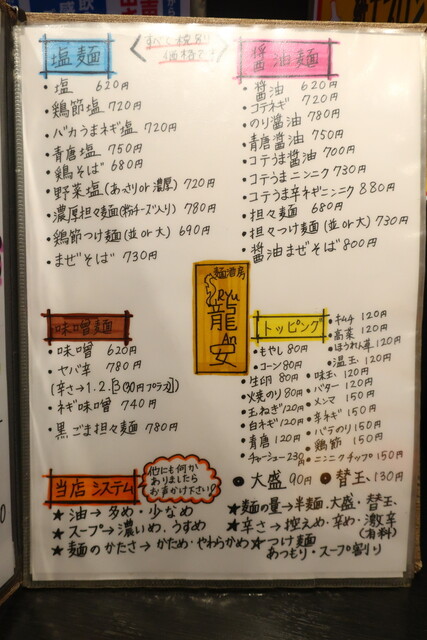 塩麺
すべて税別
価格です
・塩 620円
・鶏節塩 720円
・バカうまネギ塩 720円
・青唐塩 750円
・鶏そば 680円
・野菜塩(あさりor濃厚) 720円
・濃厚担々麺(粉チーズ入り) 780円
・鶏節つけ麺(並or大) 690円
・まぜそば 730円
醤油麺
・醤油 620円
・コテネギ 720円
・のり醤油 780円
・青唐醤油 750円
・コテうま醤油 700円
・コテうまニンニク 730円
・コテうま辛ネギニンニク 880円
・担々麺 680円
・担々つけ麺(並or大) 730円
・醤油まぜそば 800円
麺酒房
Ryu
龍
An
安
味噌麺
・味噌 620円
・ヤバ辛 780円
(辛さ→1.2.[3(30円プラス)])
・ネギ味噌 740円
・黒ごま担々麺 780円
トッピング
・もやし 80円
・コーン 80円
・生卵 80円
・焼のり 80円
・玉ねぎ 120円
・白ネギ 120円
・青唐 120円
・チャーシュー 230円
・キムチ 120円
・高菜 120円
・ほうれん草 120円
・温玉 120円
・味玉 120円
・バター 120円
・メンマ 150円
・辛ネギ 150円
・バラのり 150円
・鶏節 150円
・ニンニクチップ 150円
●大盛 90円 ●替玉 130円
当店システム
他にも何か
ありましたら
お声かけ下さい!
★油→多め・少なめ
★スープ→濃いめ、うすめ
★麺のかたさ→かため・やわらかめ
★麺の量→半麺、大盛・替玉
★辛さ→控えめ・辛め・激辛
(有料)
★つけ麺
あつもり・スープ割り